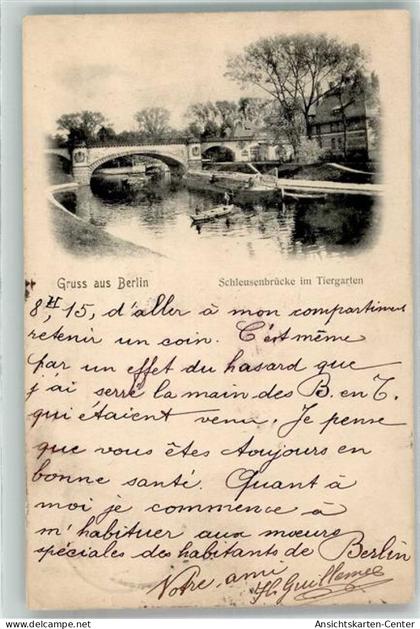 Gruss aus Berlin
Schleusenbrücke im Tiergarten
8H 15, d'aller à mon compartiment
retenir un coin. C'est même
par un effet du hasard que
j'ai serré la main des B. en T.
qui étaient venu. Je pense
que vous êtes toujours en
bonne santé. Quant à
moi je commence à
m'habituer aux mœurs
spéciales des habitants de Berlin
Votre ami
Guillemee
Ansichtskarten-Center